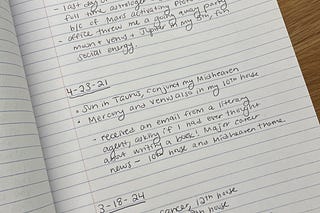 - last day of
full time astrologer
b/c of Mars activating
- office threw me a going away party
moon + venus + Jupiter in my 11th,
social energy.
4-23-21
• Sun in Taurus, conjunct my Midheaven
• Mercury and Venus also in my 10th house
- received an email from a literary
agent, asking if I had ever thought
about writing a book! Major career
news - 10th house and Midheaven theme.
3-18-24
cancer, 12th house
house